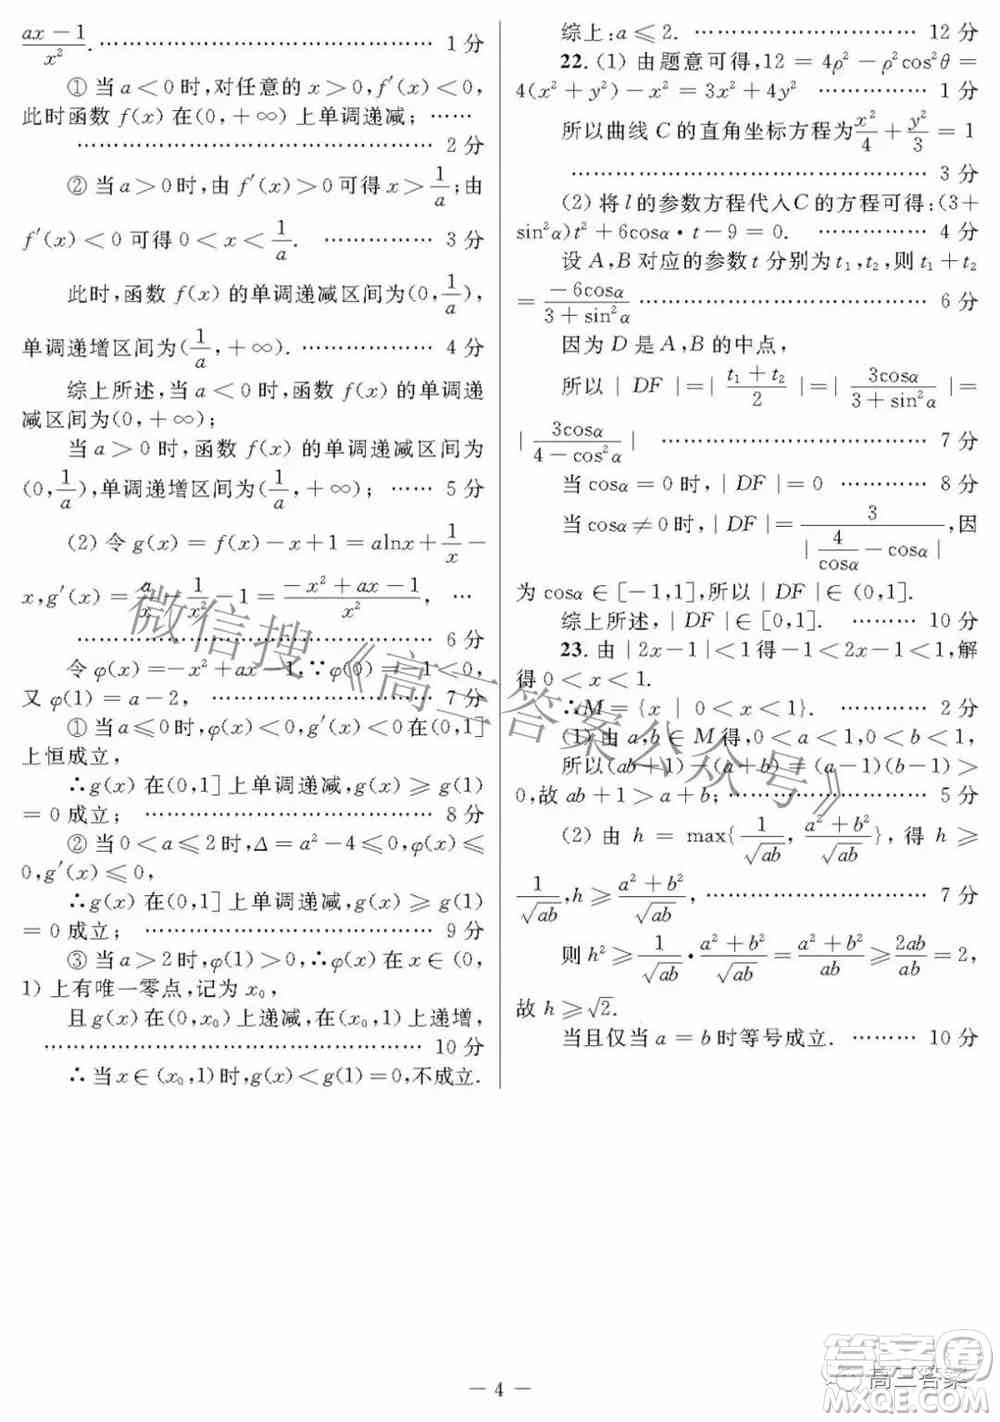 (ax-1)/x². …… 1分
① 当a<0时,对任意的x>0,f′(x)<0,
此时函数f(x)在(0,+∞)上单调递减; ……
…… 2分
② 当a>0时,由f′(x)>0可得x>1/a;由
f′(x)<0可得0<x<1/a. …… 3分
此时,函数f(x)的单调递减区间为(0,1/a),
单调递增区间为(1/a,+∞). …… 4分
综上所述,当a<0时,函数f(x)的单调递
减区间为(0,+∞);
当a>0时,函数f(x)的单调递减区间为
(0,1/a),单调递增区间为(1/a,+∞); …… 5分
(2) 令g(x)=f(x)-x+1=alnx+1/x-
x,g′(x)=a/x-1/x²-1=(-x²+ax-1)/x², …
…… 6分
令φ(x)=-x²+ax-1,∵φ(0)=-1<0,
又φ(1)=a-2, …… 7分
① 当a⩽0时,φ(x)<0,g′(x)<0在(0,1]
上恒成立,
∴g(x)在(0,1]上单调递减,g(x)⩾g(1)
=0成立; …… 8分
② 当0<a⩽2时,Δ=a²-4⩽0,φ(x)⩽
0,g′(x)⩽0,
∴g(x)在(0,1]上单调递减,g(x)⩾g(1)
=0成立; …… 9分
③ 当a>2时,φ(1)>0,∴φ(x)在x∈(0,
1)上有唯一零点,记为x₀,
且g(x)在(0,x₀)上递减,在(x₀,1)上递增,
…… 10分
∴当x∈(x₀,1)时,g(x)<g(1)=0,不成立.
综上:a⩽2. …… 12分
22. (1) 由题意可得,12=4ρ²-ρ²cos²θ=
4(x²+y²)-x²=3x²+4y² …… 1分
所以曲线C的直角坐标方程为x²/4+y²/3=1
…… 3分
(2) 将l的参数方程代入C的方程可得:(3+
sin²α)t²+6cosα·t-9=0. …… 4分
设A,B对应的参数t分别为t₁,t₂,则t₁+t₂
=-6cosα/(3+sin²α) …… 6分
因为D是A,B的中点,
所以|DF|=|(t₁+t₂)/2|=|3cosα/(3+sin²α)|=
|3cosα/(4-cos²α)| …… 7分
当cosα=0时,|DF|=0 …… 8分
当cosα≠0时,|DF|=3/|4/cosα-cosα|,因
为cosα∈[-1,1],所以|DF|∈(0,1].
综上所述,|DF|∈[0,1]. …… 10分
23. 由|2x-1|<1得-1<2x-1<1,解
得0<x<1.
∴M={x|0<x<1}. …… 2分
(1) 由a,b∈M得,0<a<1,0<b<1,
所以(ab+1)-(a+b)=(a-1)(b-1)>
0,故ab+1>a+b; …… 5分
(2) 由h=max{1/√ab,(a²+b²)/√ab},得h⩾
1/√ab,h⩾(a²+b²)/√ab, …… 7分
则h²⩾1/√ab·(a²+b²)/√ab=(a²+b²)/ab⩾2ab/ab=2,
故h⩾√2.
当且仅当a=b时等号成立. …… 10分
微信搜《高三答案公众号》
答案卷
高三答案
— 4 —